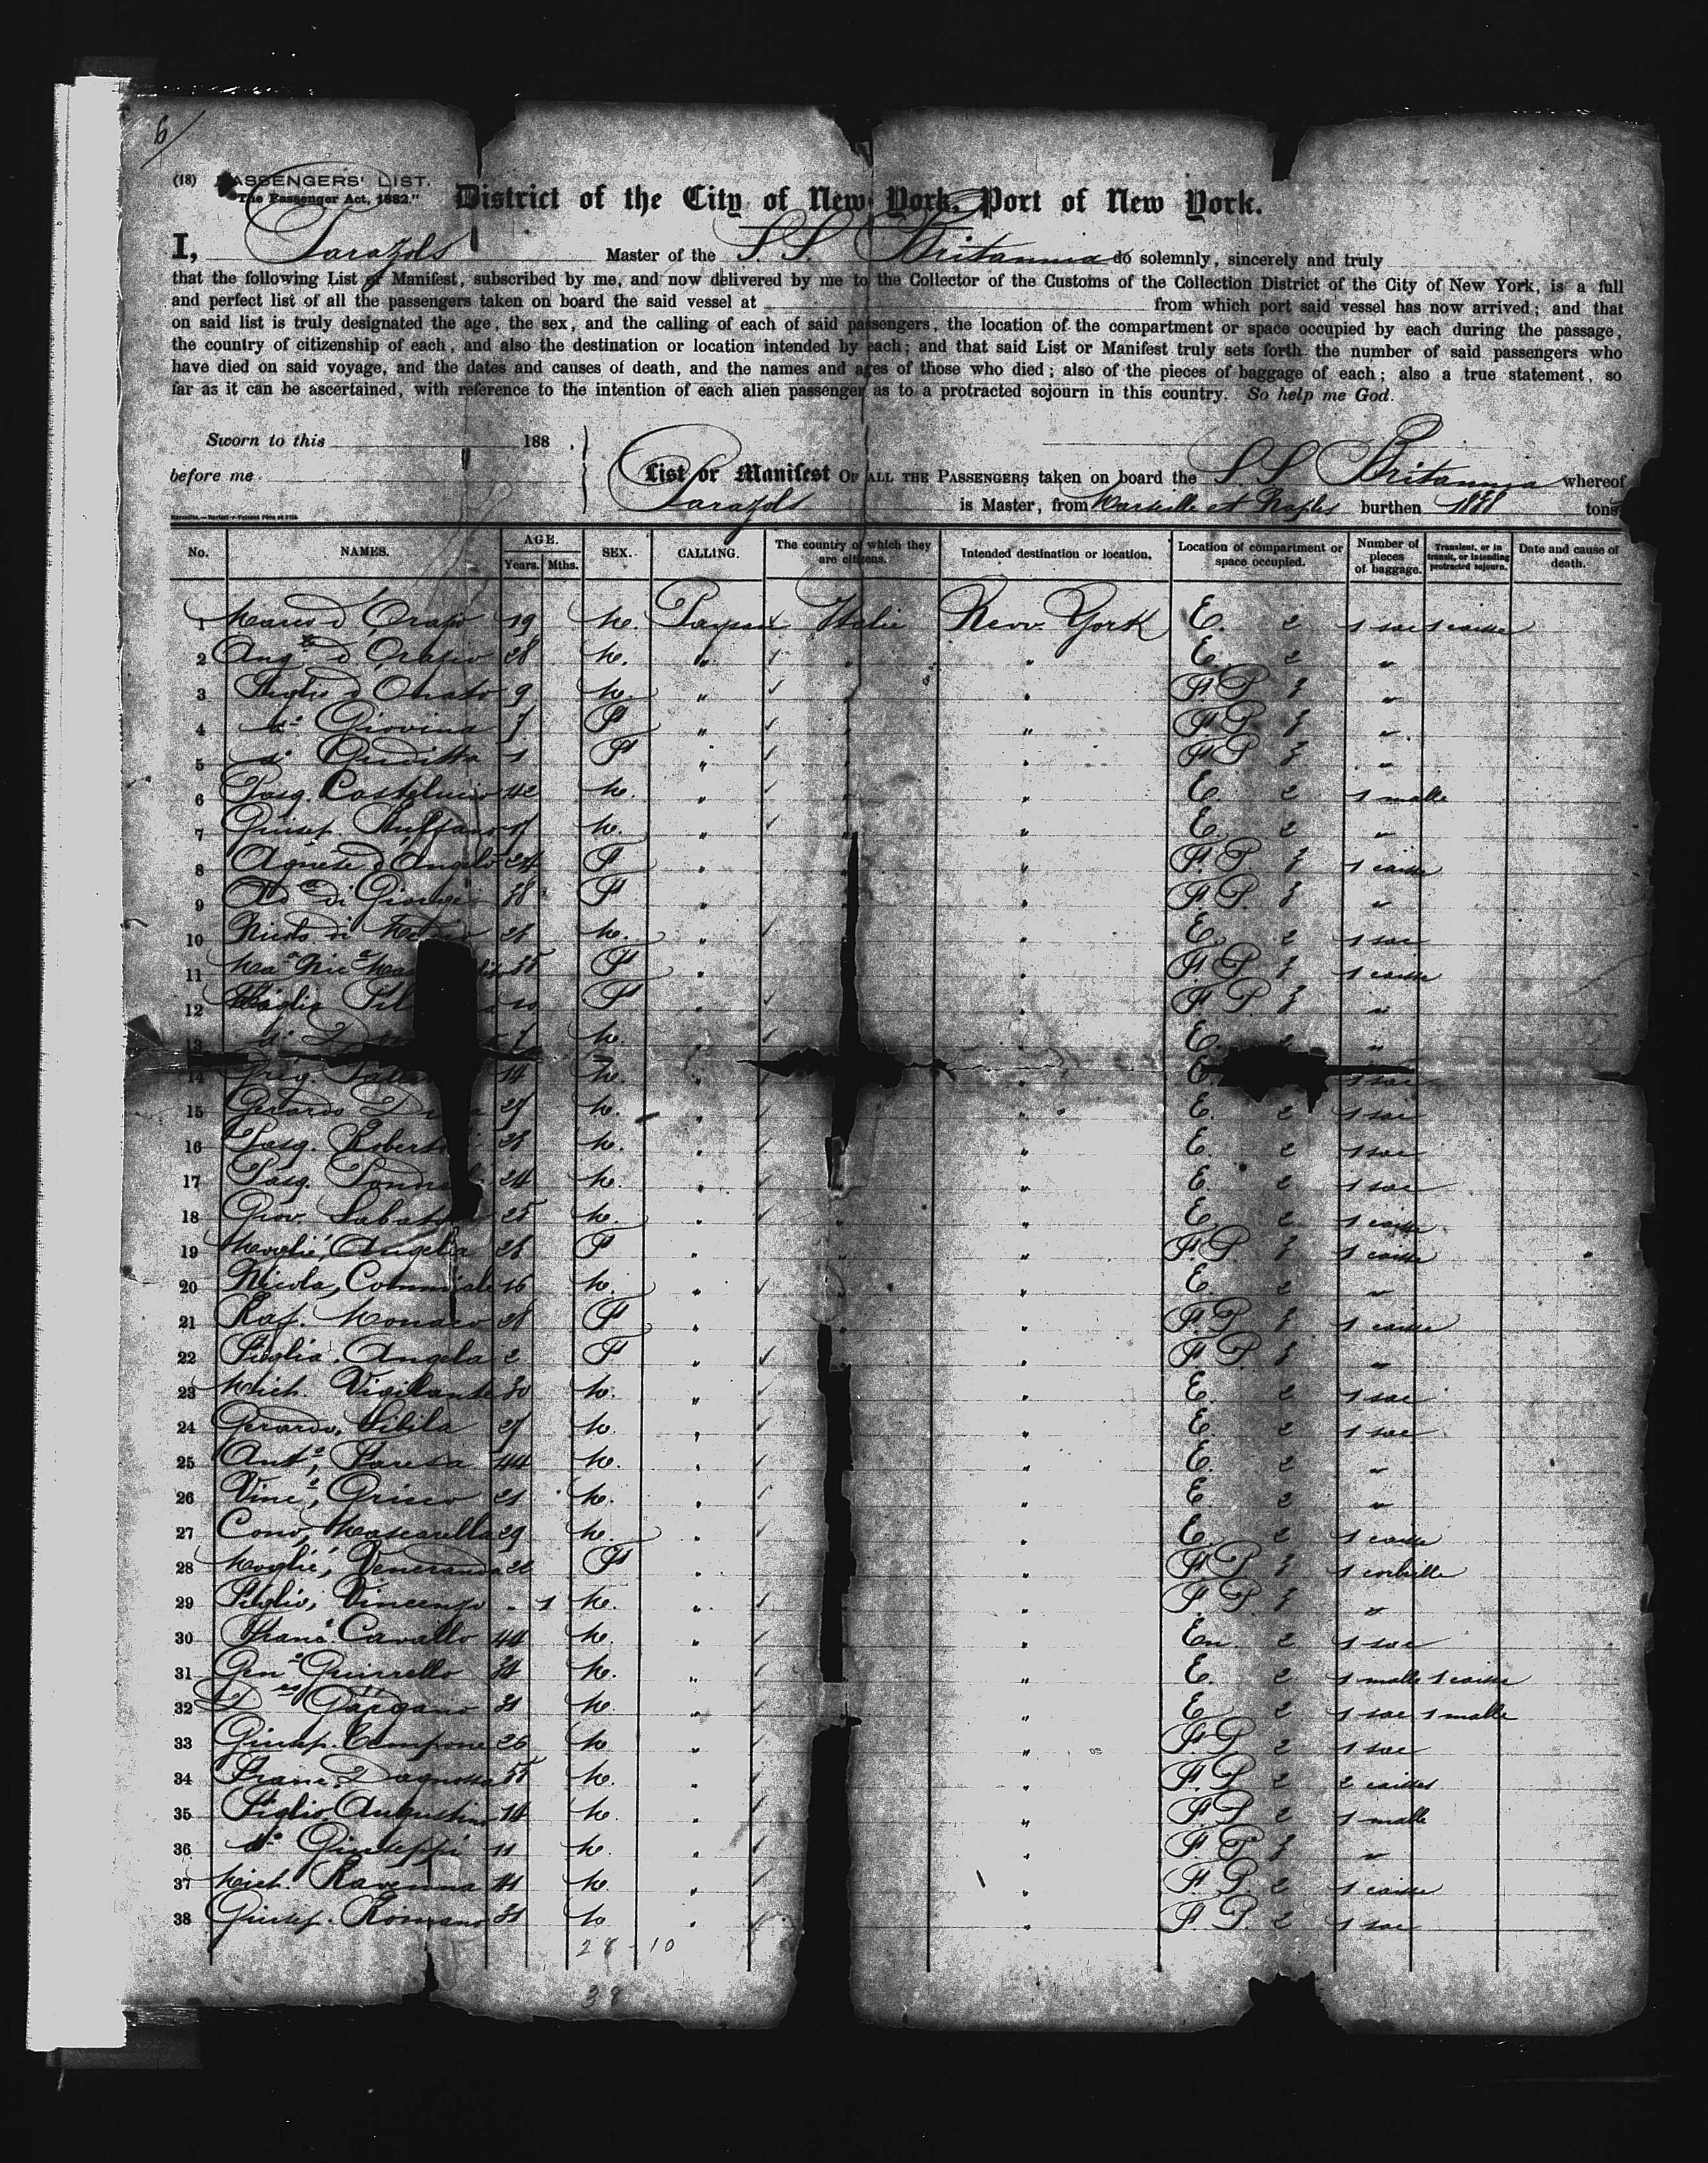 6/
(18) PASSENGERS' LIST.
"The Passenger Act, 1882."
District of the City of New York, Port of New York.
I, Sarazols Master of the S. S. Britannia do solemnly, sincerely and truly
that the following List or Manifest, subscribed by me, and now delivered by me to the Collector of the Customs of the Collection District of the City of New York, is a full
and perfect list of all the passengers taken on board the said vessel at from which port said vessel has now arrived; and that
on said list is truly designated the age, the sex, and the calling of each of said passengers, the location of the compartment or space occupied by each during the passage,
the country of citizenship of each, and also the destination or location intended by each; and that said List or Manifest truly sets forth the number of said passengers who
have died on said voyage, and the dates and causes of death, and the names and ages of those who died; also of the pieces of baggage of each; also a true statement, so
far as it can be ascertained, with reference to the intention of each alien passenger as to a protracted sojourn in this country. So help me God.
Sworn to this 188 .
before me
List or Manifest OF ALL THE PASSENGERS taken on board the S. S Britannia whereof
Sarazols is Master, from Marseille et Naples burthen tons
No. NAMES. AGE. Years. Mths. SEX. CALLING. The country of which they are citizens. Intended destination or location. Location of compartment or space occupied. Number of pieces of baggage. Transient, or in transit, or intending protracted sojourn. Date and cause of death.
1 Marco d'Orazio 19 M. Paysan Italie New York E. 2 1 sac 1 caisse
2 d'Orazio 28 M. " " " E. 2 "
3 Figlio d Onato 9 M. " " " F P 3 "
4 d° Giovina F " " " F P 3 "
5 d° Giuditta 1 F " " " F P 3 "
6 Pasq. 42 M. " " " E. 2 1 malle
7 Giusep. M. " " " E. 2 "
8 Agnese d'Angelo 24 F " " " F. P. 3 1 caisse
9 di Giorgio 38 F " " " F. P. 3 "
10 Nicola di M. " " " E. 2 1 sac
11 F " " " F. P. 3 1 caisse
12 Figlia Fil F " " " F. P. 3 "
13 d° M. " " " E. 2 "
14 14 M. " " " E. 1 sac
15 Gerardo M. " " " E. 2 1 sac
16 Pasq. Robert 28 M. " " " E. 2 1 sac
17 Pasq. 24 M. " " " E. 2 1 sac
18 Giov. Sabat 25 M. " " " E. 2 1 caisse
19 Moglie Angelia 28 F " " " F. P. 3 1 caisse
20 Nicola, 16 M. " " " E. 2 "
21 Raf. Monaco 28 F " " " F. P. 3 1 caisse
22 Figlia. Angela 2 F " " " F P 3 "
23 Mich. Vigilante 30 M. " " " E. 2 1 sac
24 Gerardo, Sibila 27 M. " " " E. 2 1 sac
25 Ant°, 44 M. " " " E. 2 "
26 Vinc°, Grieco 21 M. " " " E. 2 "
27 Cono, Mascarella 29 M. " " " E. 2 1 caisse
28 Moglie, Veneranda F " " " F P 3 1 corbeille
29 Figlio, Vincenzo . 1 M. " " " F. P. 3 "
30 Franc° Cavallo 44 M. " " " En. 2 1 sac
31 Gen° 34 M. " " " E. 2 1 malle 1 caisse
32 Gargano 31 M. " " " E 2 1 sac 1 malle
33 Giusep. Campone 26 M " " " F. P. 2 1 sac
34 Franc° 55 M. " " " F. P. 2 2 caisses
35 Figlio Augustino 14 M. " " " F. P. 2 1 malle
36 d° Giuseppi 11 M. " " " F P 3 "
37 Mich. Ravenna M. " " " F. P. 2 1 caisse
38 Giusep. Romano 31 M " " " F. P. 2 1 sac
28-10
38